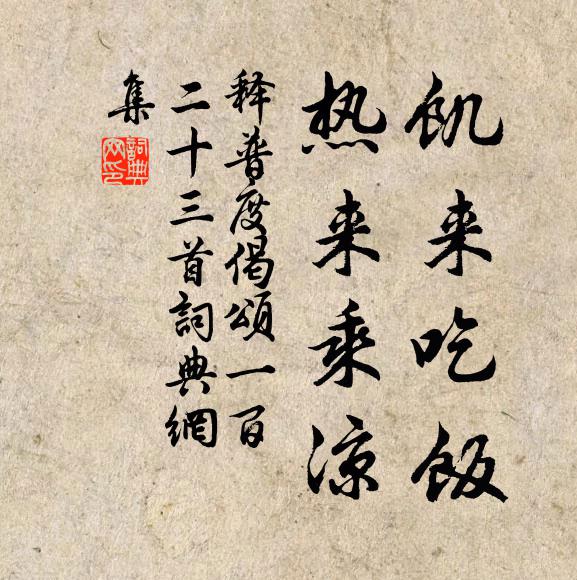 飢来吃飯
热来乘凉
释普度偈頌一百
二十三首詞典網
集
詞典
网印